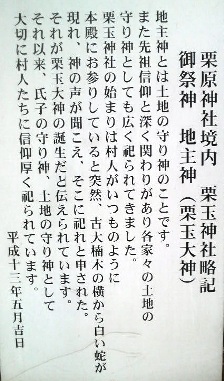 栗原神社境内　栗玉神社略記
御祭神　地主神（栗玉大神）
地主神とは土地の守り神のことです。
また先祖信仰と深く関わりがあり各家々の土地の
守り神としても広く祀られてきました。
栗玉神社の始まりは村人がいつものように
本殿にお参りしていると突然、古大楠木の横から白い蛇が
現れ、神の声が聞こえ、そこに祀れと申された。
それが栗玉大神の誕生だと伝えられています。
それ以来、氏子の守り神、土地の守り神として
大切に村人たちに信仰厚く祀られています。
平成十三年五月吉日